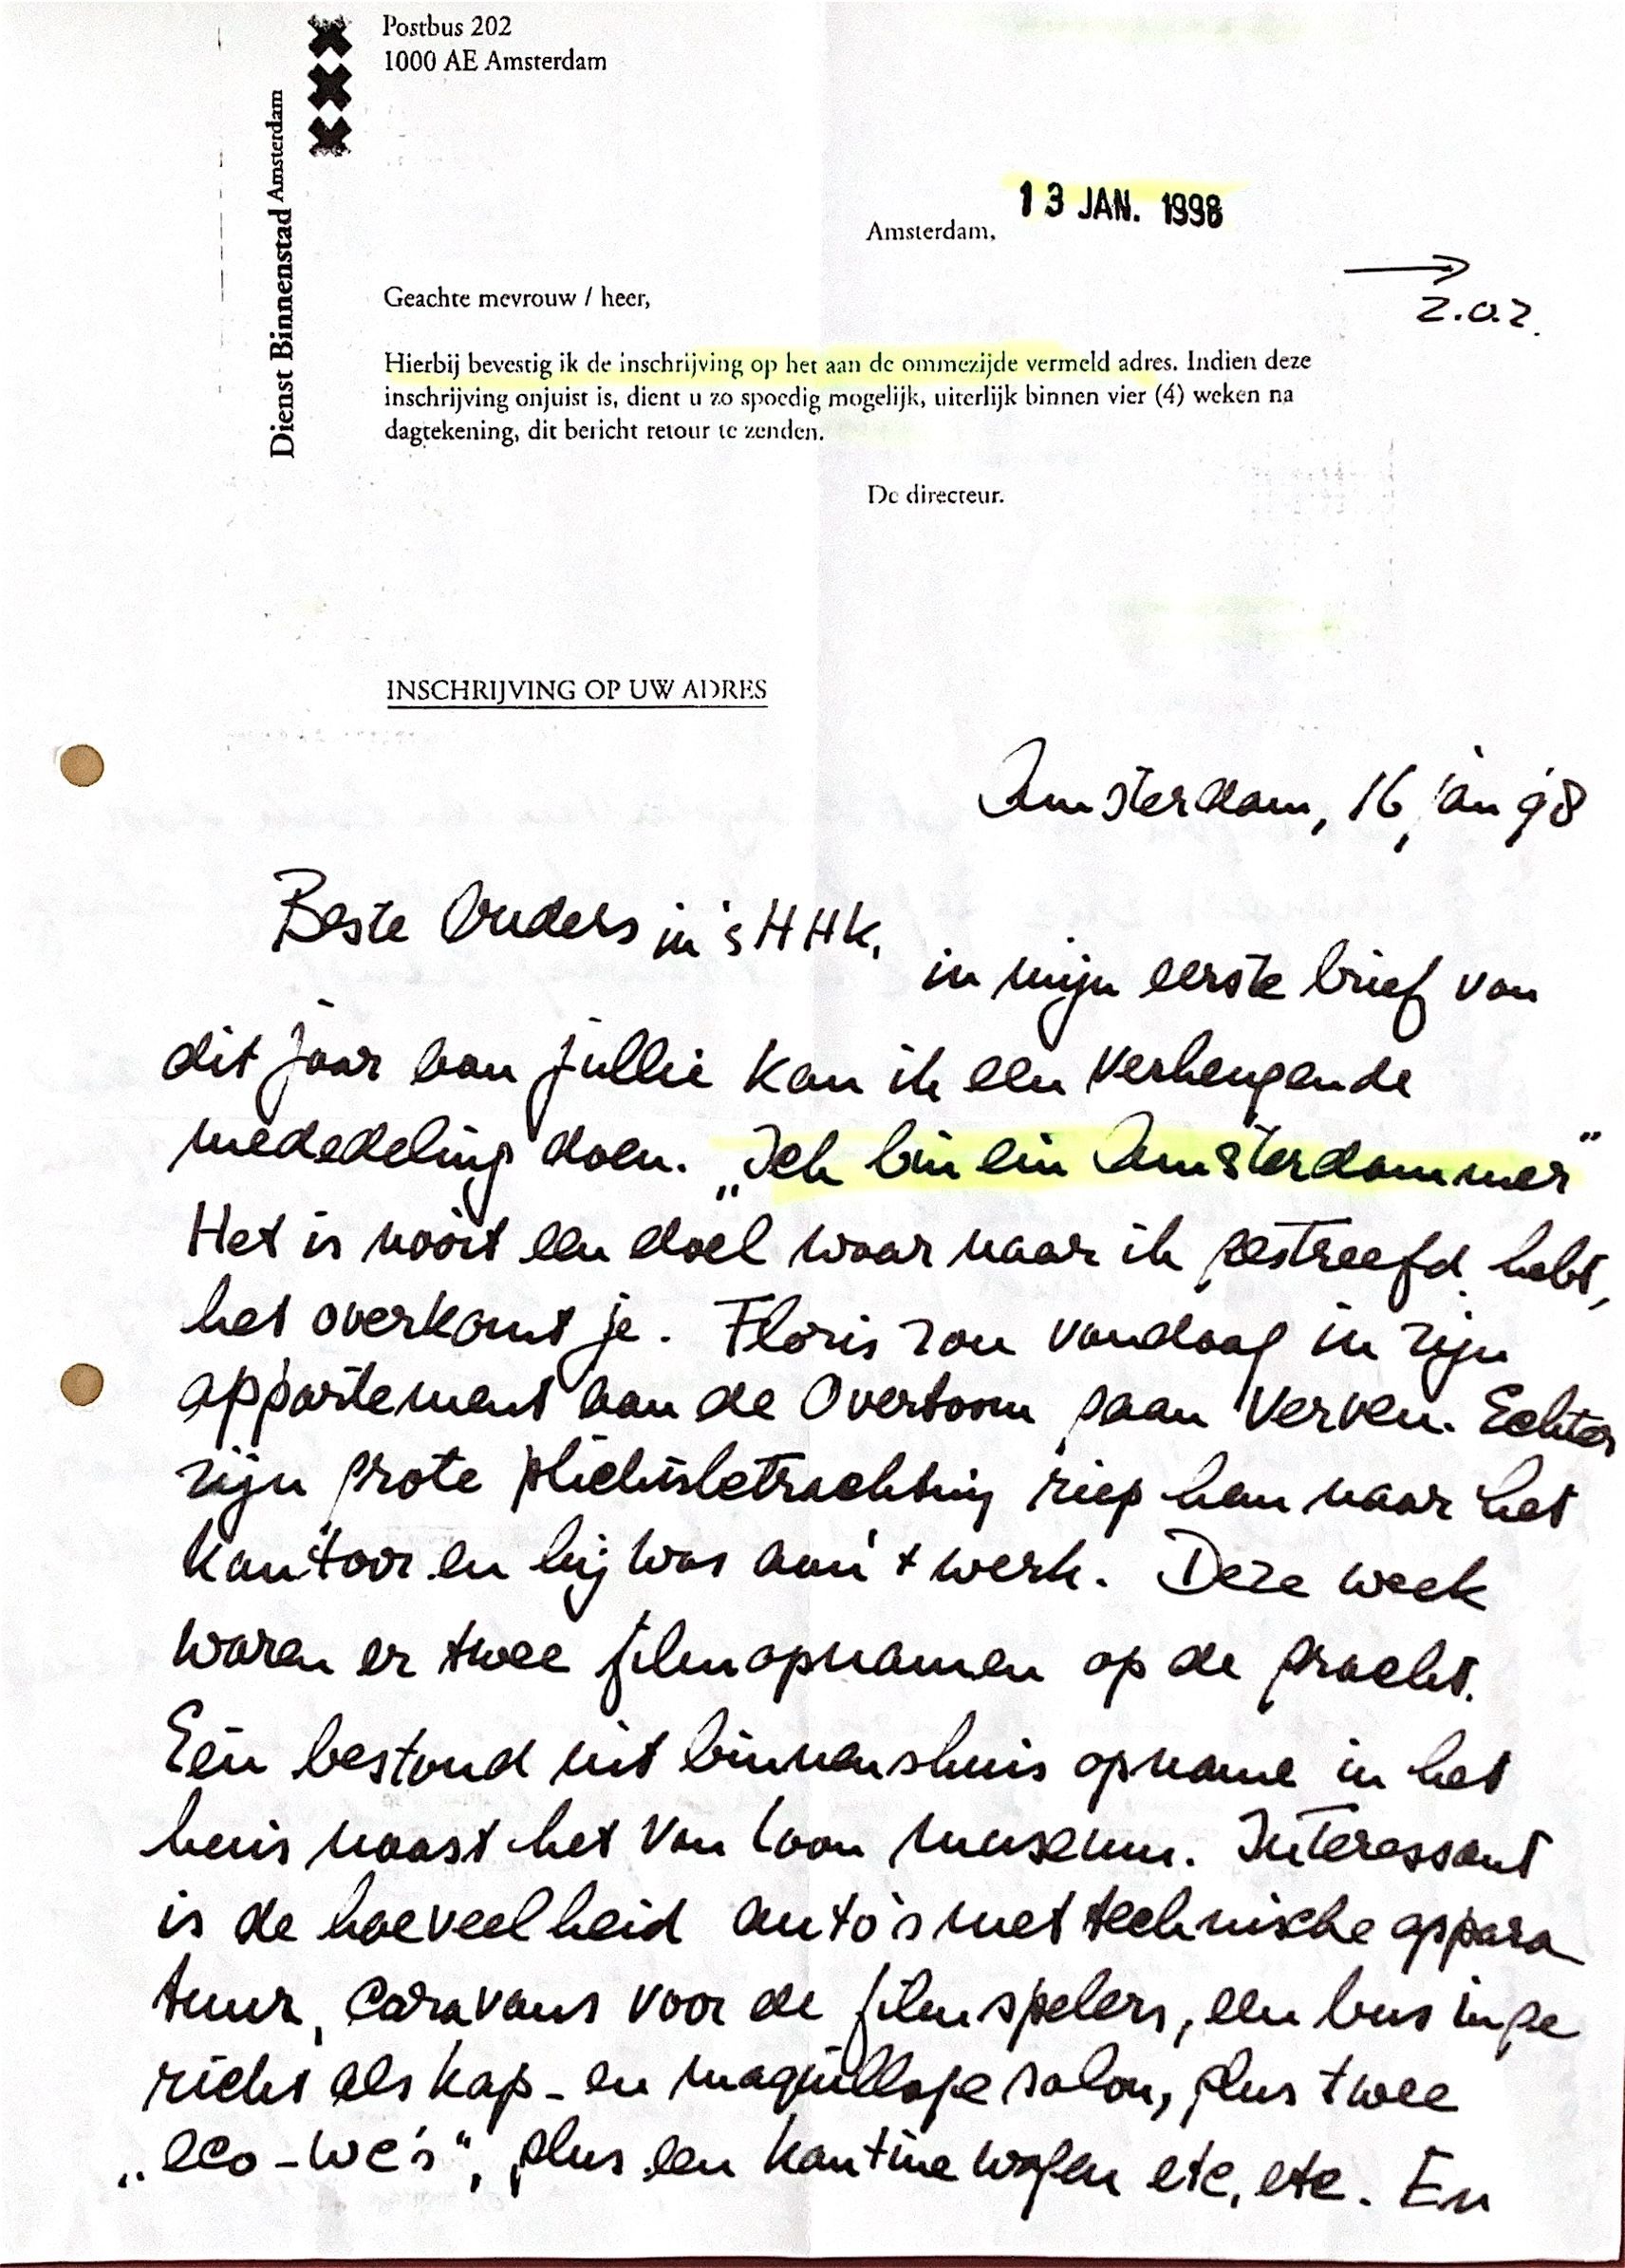 Postbus 202
1000 AE Amsterdam
Dienst Binnenstad Amsterdam
Amsterdam, 13 JAN. 1998
z.o.z.
Geachte mevrouw / heer,
Hierbij bevestig ik de inschrijving op het aan de ommezijde vermeld adres. Indien deze
inschrijving onjuist is, dient u zo spoedig mogelijk, uiterlijk binnen vier (4) weken na
dagtekening, dit bericht retour te zenden.
De directeur.
INSCHRIJVING OP UW ADRES
Amsterdam, 16 jan 98
Beste Ouders in 's HHK,
in mijn eerste brief van
dit jaar aan jullie kan ik een verheugende
mededeling doen. „Ich bin ein Amsterdammer"
Het is nooit een doel waar naar ik gestreefd hebt,
het overkomt je. Floris zou vandaag in zijn
appartement aan de Overtoom gaan verven. Echter
zijn grote plichtsbetrachting riep hem naar het
kantoor en hij was aan 't werk. Deze week
waren er twee filmopnamen op de gracht.
Eén bestond uit binnenshuis opname in het
huis naast het Van Loon museum. Interessant
is de hoeveelheid auto's met technische appara
tuur, caravans voor de filmspelers, een bus inge
richt als kap- en maquillage salon, plus twee
„eco-wc's", plus een kantine wagen etc, etc. En